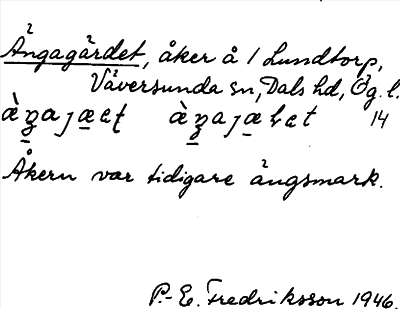 Ängagärdet, åker å 1 Lundtorp,
Väversunda sn, Dals hd, Ög. l.
14
Åkern var tidigare ängsmark.
P.-E. Fredriksson 1946.